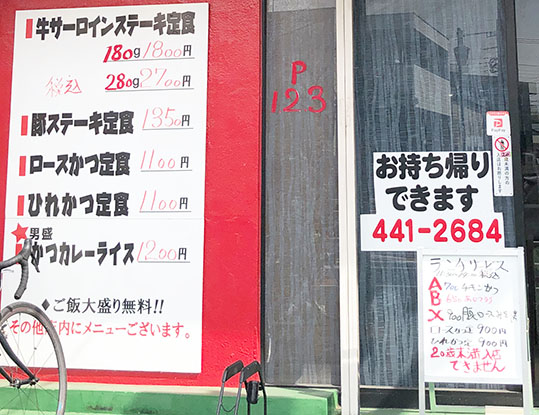 牛サーロインステーキ定食
180g 1800円
税込 280g 2700円
豚ステーキ定食 1350円
ロースかつ定食 1100円
ひれかつ定食 1100円
★男盛
かつカレーライス 1200円
◆ご飯大盛り無料!!
その他店内にメニューございます。
P
123
PayPay
お持ち帰り
できます
441-2684
ランチサービス
A
B
X
ロースかつ 900円
ひれかつ 900円
20歳未満入店
できません